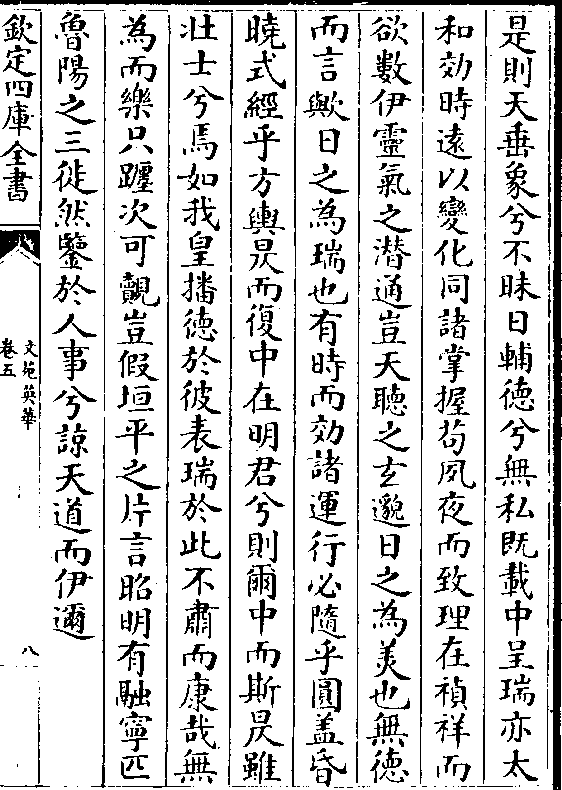 是則天垂象兮不昧日輔德兮無私既載中呈瑞亦太
和効時遠以變化同諸掌握苟夙夜而致理在禎祥而
欲數伊靈氣之潛通豈天聽之玄邈日之為羙也無德
而言歟日之為瑞也有時而効諸運行必隨乎圓盖昏
曉式經乎方輿昃而復中在明君兮則爾中而斯昃雖
壯士兮焉如我皇播德於彼表瑞於此不肅而康哉無
為而樂只躔次可覿豈假垣平之片言昭明有融寧匹
魯陽之三徙然鑒於人事兮諒天道而伊邇
欽定四庫全書
文苑英華
卷五
八